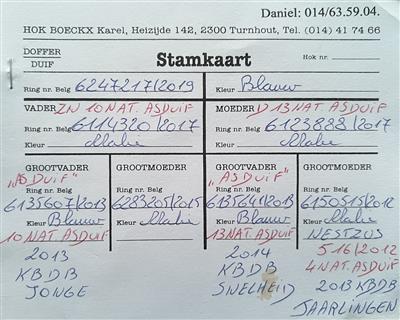 Daniel: 014/63.59.04.
HOK BOECKX Karel, Heizijde 142, 2300 Turnhout, Tel. (014) 41 74 66
DOFFER
DUIF
Stamkaart
Hok nr.
Ring nr. Belg 6247217/2019
Kleur Blauw
VADER ZN 10 NAT. ASDUIF
Ring nr. Belg 6114320/2017
Kleur
MOEDER D 13 NAT. ASDUIF
Ring nr. Belg 6123888/2017
Kleur
GROOTVADER
"AS DUIF"
Ring nr. Belg
6135607/2013
Kleur Blauw
10 NAT ASDUIF
2013
KBDB
JONGE
GROOTMOEDER
Ring nr. Belg
6283205/2015
Kleur
GROOTVADER
"ASDUIF"
Ring nr. Belg
Kleur Blauw
13 NAT. ASDUIF
2014
KBDB
SNELHEID
GROOTMOEDER
Ring nr. Belg
6150515/2012
Kleur
NESTZUS
516/2012
4 NAT. ASDUIF
2013 KBDB
JAARLINGEN